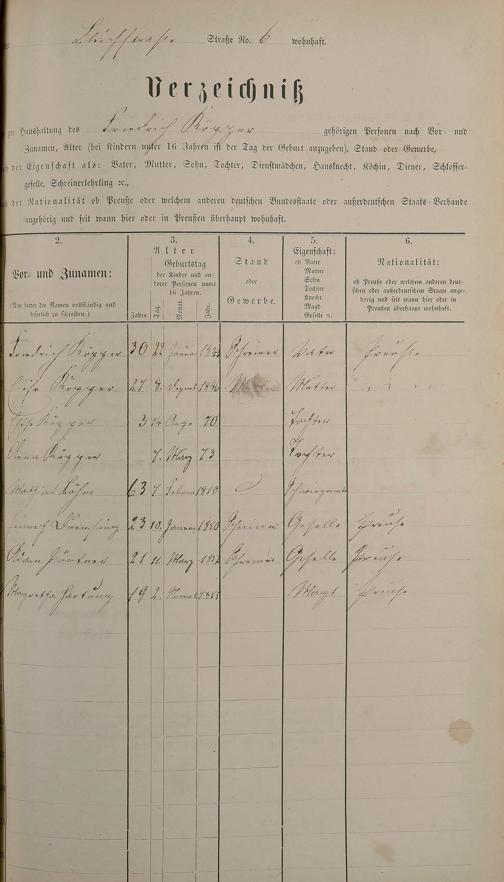 Bleichstraße Straße No. 6 wohnhaft.
Verzeichniß
zur Haushaltung des Friedrich Köpper gehörigen Personen nach Vor- und
Zunamen, Alter (bei Kindern unter 16 Jahren ist der Tag der Geburt anzugeben), Stand oder Gewerbe,
der Eigenschaft als: Vater, Mutter, Sohn, Tochter, Dienstmädchen, Hausknecht, Köchin, Diener, Schlosser-
geselle, Schreinerlehrling ꝛc.,
der Nationalität ob Preuße oder welchem anderen deutschen Bundesstaate oder außerdeutschen Staats-Verbande
angehörig und seit wann hier oder in Preußen überhaupt wohnhaft.
2. 3. 4. 5. 6.
Vor- und Zunamen:
(Man bittet die Namen vollständig und
leserlich zu schreiben.)
Alter
Geburtstag
der Kinder und an-
derer Personen unter
16 Jahren.
Jahre. Tag. Monat. Jahr.
Stand
oder
Gewerbe.
Eigenschaft:
ob Vater
Mutter
Sohn
Tochter
Knecht
Magd
Geselle ꝛc.
Nationalität:
ob Preuße oder welchem anderen deut-
schen oder außerdeutschen Staate ange-
hörig und seit wann hier oder in
Preußen überhaupt wohnhaft.
Friedrich Köpper 30 22 Januar Schreiner Vater Preuße
Köpper 27 8. 1846 Mutter " "
Elise Köpper 3 14 Aug. 70 Tochter
Anna Köpper 7. März 73 Tochter
63 7. Februar 1810
23 10. Januar 1850 Schreiner Geselle Preuße
Adam 21 11. März 1852 Schreiner Geselle Preuße
Margretha Hartung 19 2. Magd Preuße